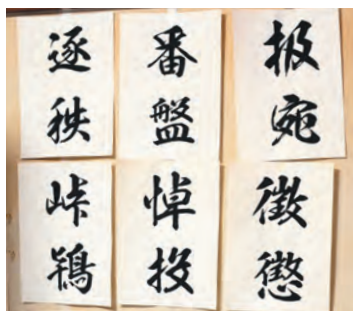 扱宛
番盤
逐秩
徴懲
悼投
峠